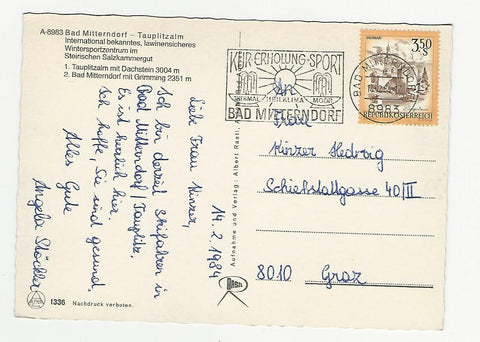 A-8983 Bad Mitterndorf – Tauplitzalm
International bekanntes, lawinensicheres
Wintersportzentrum im
Steirischen Salzkammergut
1. Tauplitzalm mit Dachstein 3004 m
2. Bad Mitterndorf mit Grimming 2351 m
14.2.1984
Liebe Frau Kinzer,
Ich bin derzeit Skifahren in
Bad Mitterndorf / Tauplitz.
Es ist herrlich hier.
Ich hoffe, Sie sind gesund.
Alles Gute
Angela Stöckler
1336 Nachdruck verboten.
Aufnahme und Verlag: Albert Rastl,
RASTL
KUR·ERHOLUNG·SPORT
THERMAL HEILKLIMA MOOR
BAD MITTERNDORF
BAD MITTERNDORF
8983
350
REPUBLIK ÖSTERREICH
An
Frau
Kinzer Hedwig
Schießstattgasse 40/III
8010 Graz